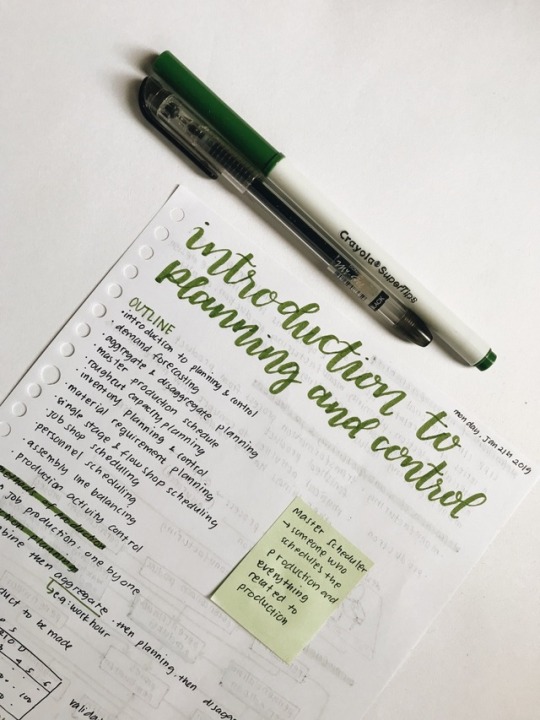 Crayola® SuperTips
introduction to
planning and control
monday, Jan 21st 2019
OUTLINE
· introduction to planning & control
· demand forecasting
· aggregate & disaggregate planning
· master production schedule
· roughcut capacity planning
· inventory planning & control
· material requirement planning
· single stage & flow shop scheduling
· job shop scheduling
· personnel scheduling
· assembly line balancing
· production activity control
job production: one by one
then aggregate, then planning, then
↳ e.g: work hour
to be made
Master Scheduler
→ someone who
schedules the
production and
everything
related to
production